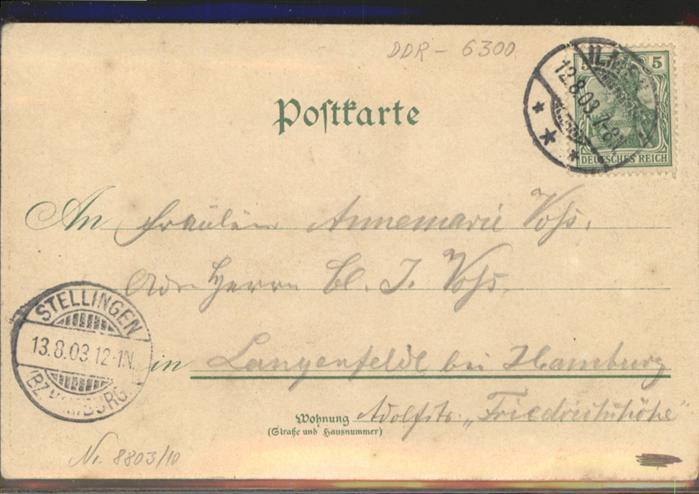 DDR - 6300
Postkarte
5
12.8.03. 7-8
DEUTSCHES REICH
An Fräulein Annemarie Voss.
Adr. Herrn Cl. J. Voss.
in Langenfelde bei Hamburg
Wohnung Adolfstr. „Friedrichshöhe"
(Straße und Hausnummer)
STELLINGEN
13.8.03 12-1N.
(BZ. HAMBURG.)
Nr. 8803/10